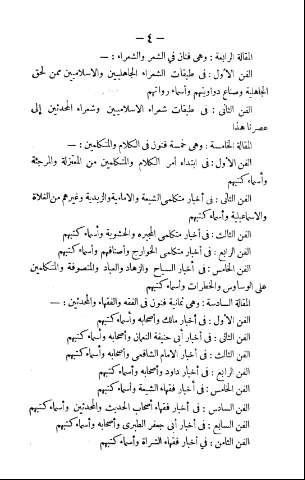 — ٤ —
المقالة الرابعة : وهى فنان فى الشعر والشعراء : —
الفن الأول : فى طبقات الشعراء الجاهليين والاسلاميين ممن لحق
الجاهلية وصناع دواوينهم وأسماء رواتهم
الفن الثانى : فى طبقات شعراء الاسلاميين وشعراء المحدثين إلى
عصرنا هذا
المقالة الخامسة : وهى خمسة فنون فى الكلام والمتكلمين : —
الفن الأول : فى ابتداء أمر الكلام والمتكلمين من المعتزلة والمرجئة
وأسماء كتبهم
الفن الثانى : فى أخبار متكلمى الشيعة والامامية والزيدية وغيرهم من الغلاة
والاسماعيلية وأسماء كتبهم
الفن الثالث : فى أخبار متكلمى المجبره والحشوية وأسماء كتبهم
الفن الرابع : فى أخبار متكلمى الخوارج وأصنافهم وأسماء كتبهم
الفن الخامس : فى أخبار السياح والزهاد والعباد والمتصوفة والمتكلمين
على الوساوس والخطرات وأسماء كتبهم
المقالة السادسة : وهى ثمانية فنون فى الفقه والفقهاء والمحدثين : —
الفن الأول : فى أخبار مالك وأصحابه وأسماء كتبهم
الفن الثانى : فى أخبار أبى حنيفة النعمان وأصحابه وأسماء كتبهم
الفن الثالث : فى أخبار الامام الشافعى وأصحابه وأسماء كتبهم
الفن الرابع : فى أخبار داود وأصحابه وأسماء كتبهم
الفن الخامس : فى أخبار فقهاء الشيعة وأسماء كتبهم
الفن السادس : فى أخبار فقهاء أصحاب الحديث والمحدثين وأسماء كتبهم
الفن السابع : فى أخبار أبى جعفر الطبرى وأصحابه وأسماء كتبهم
الفن الثامن : فى أخبار فقهاء الشراة وأسماء كتبهم